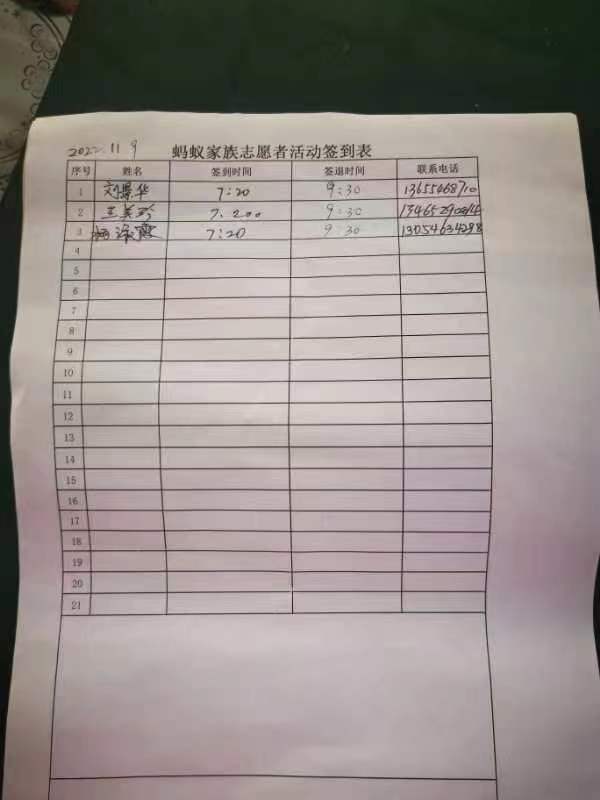 2022.11 9 蚂蚁家族志愿者活动签到表
序号 姓名 签到时间 签退时间 联系电话
1 刘景华 7:20 9:30
2 王美珍 7:200 9:30
3 7:20 9:30 13054634298
4
5
6
7
8
9
10
11
12
13
14
15
16
17
18
19
20
21